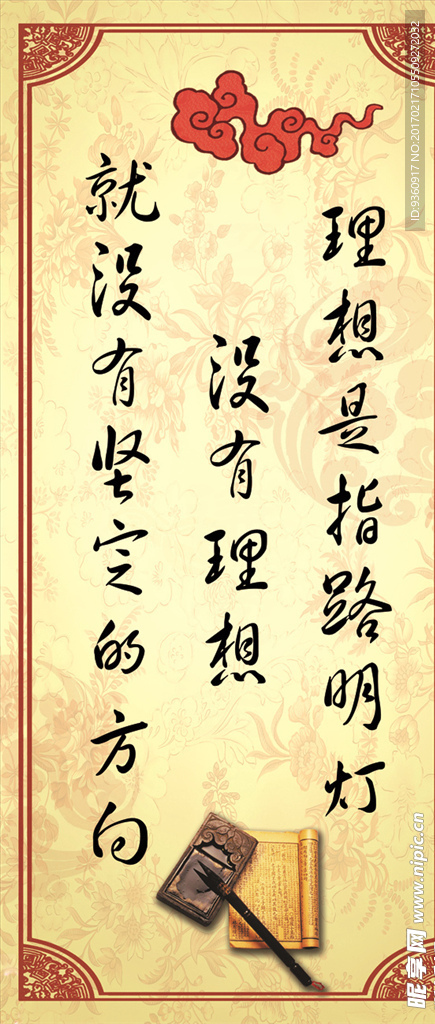 理想是指路明灯
没有理想
就没有坚定的方向
ID:9360917 NO:20170217105509272032
昵享网 www.nipic.cn